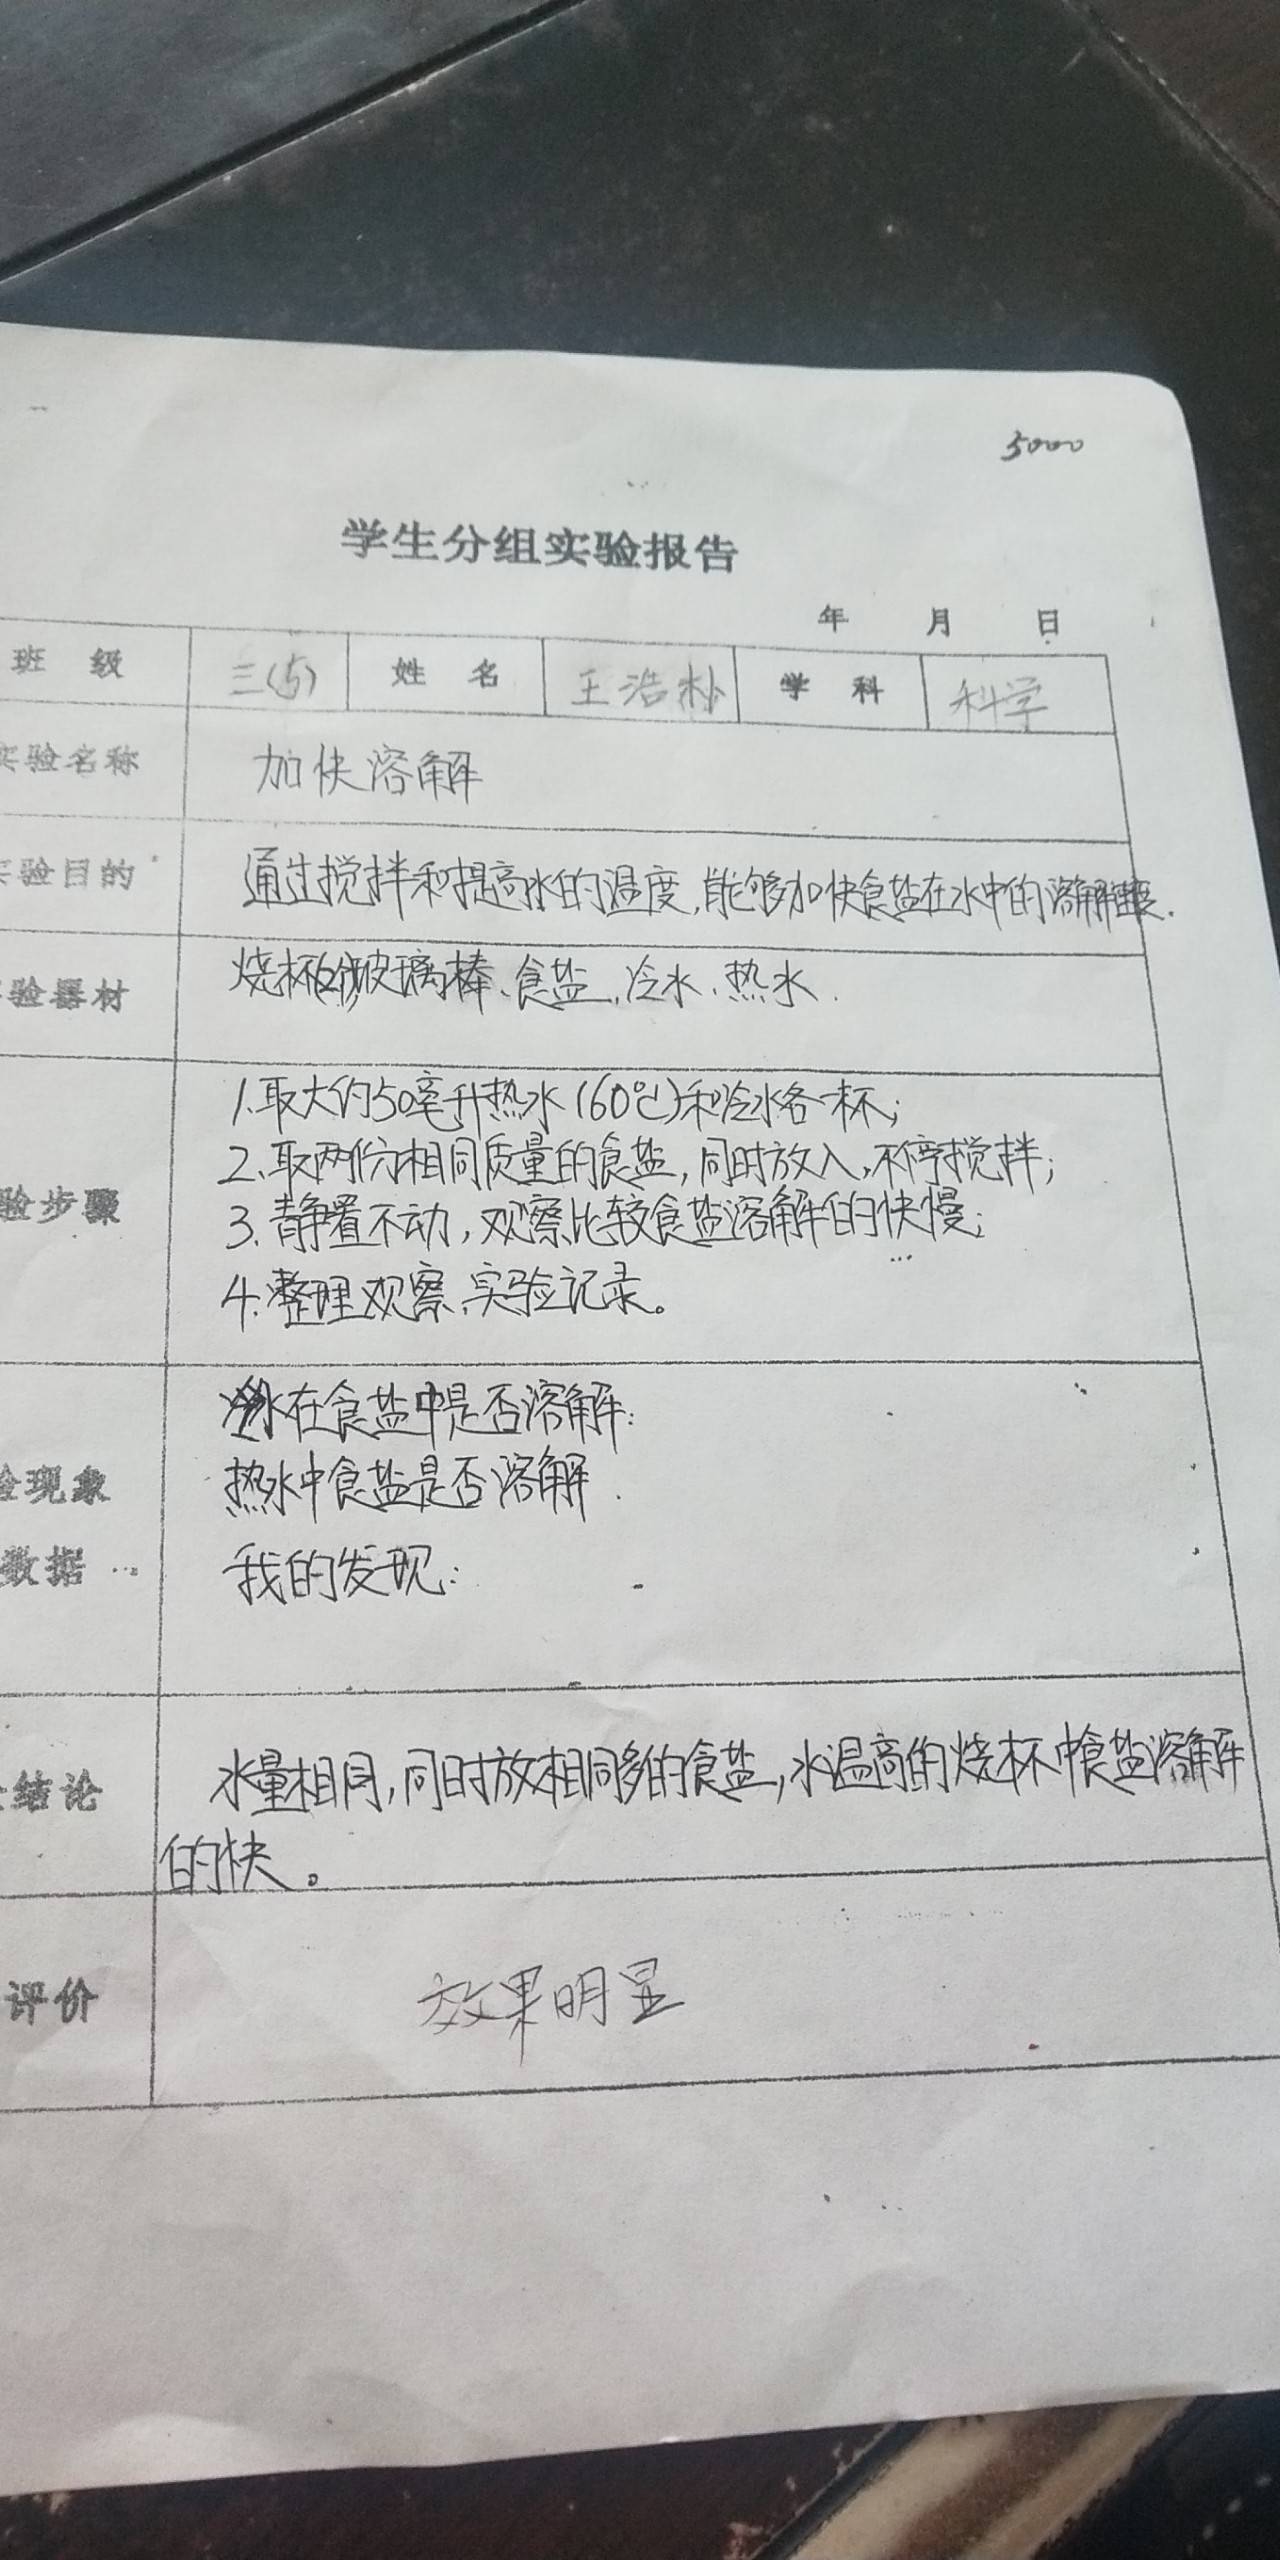 5000
学生分组实验报告
年 月 日
班 级 三(5) 姓 名 王浩朴 学 科 科学
实验名称 加快溶解
实验目的 通过搅拌和提高水的温度,能够加快食盐在水中的溶解速度.
验器材 烧杯(2个)玻璃棒、食盐、冷水、热水.
1.取大约50毫升热水(60℃)和冷水各一杯;
2、取两份相同质量的食盐,同时放入,不停搅拌;
验步骤
3.静置不动,观察比较食盐溶解的快慢;
4.整理观察、实验记录。
冷水在食盐中是否溶解:
验现象 热水中食盐是否溶解.
数据 我的发现:
结论 水量相同,同时放相同多的食盐,水温高的烧杯中食盐溶解
的快。
评价 效果明显